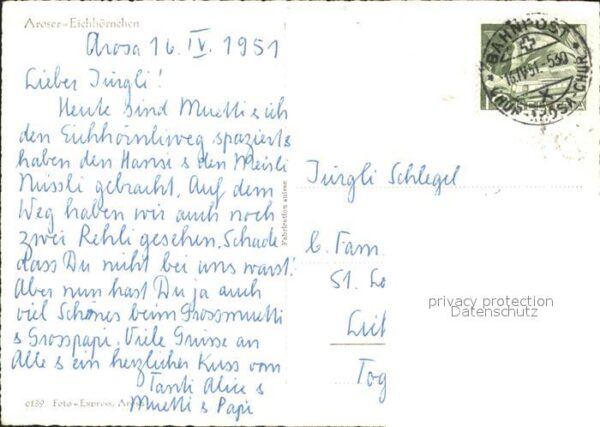 Aroser-Eichhörnchen
Arosa 16. IV. 1951
Lieber Jürgli!
Heute sind Muetti & ich
den Eichhörnliweg spaziert &
haben den Hansi & den Meisli
Nüssli gebracht. Auf dem
Weg haben wir auch noch
zwei Rehli gesehen. Schade
dass Du nicht bei uns warst!
Aber nun hast Du ja auch
viel Schönes beim Grossmuetti
& Grosspapi. Viele Grüsse an
Alle & ein herzlicher Kuss vom
Tanti Alice &
Muetti & Papi
0139 Foto-Express, Arosa
BAHNPOST
16.IV.51-530
CHUR-AROSA-CHUR
Jürgli Schlegel
b. Fam.
St. Lo
Lich
Tog
privacy protection
Datenschutz